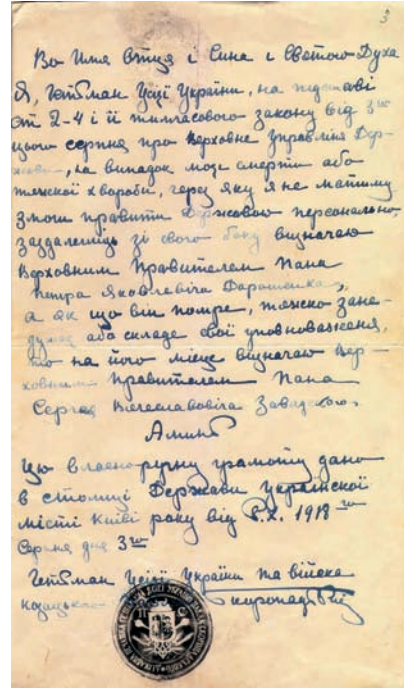 3
Во Имя Отця і Сина і Святого Духа
Я, Гетьман Усії України, на підставі
ст 2-4 і її тимчасового закону від 3го
цього серпня про верховне управління Дер-
жави, на випадок моєї смерти або
тяжкої хвороби, через яку я не матиму
змоги правити Державою персонально,
заздалегідь зі свого боку визначаю
Верховним Правителем Пана
Петра Яковлевіча Дорошенка,
а як що він помре, тяжко зане-
дужає або складе свої уповноваження,
то на його місце визначаю Вер-
ховним Правителем Пана
Сергея Вячеславовіча Завадского.
Аминь
Цю власно-ручну грамоту дано
в столиці Держави Української
місті Київі року від Р.Х. 1918го
Серпня дня 3го
Гетьман Усієї України та війска
козацького Скоропадський